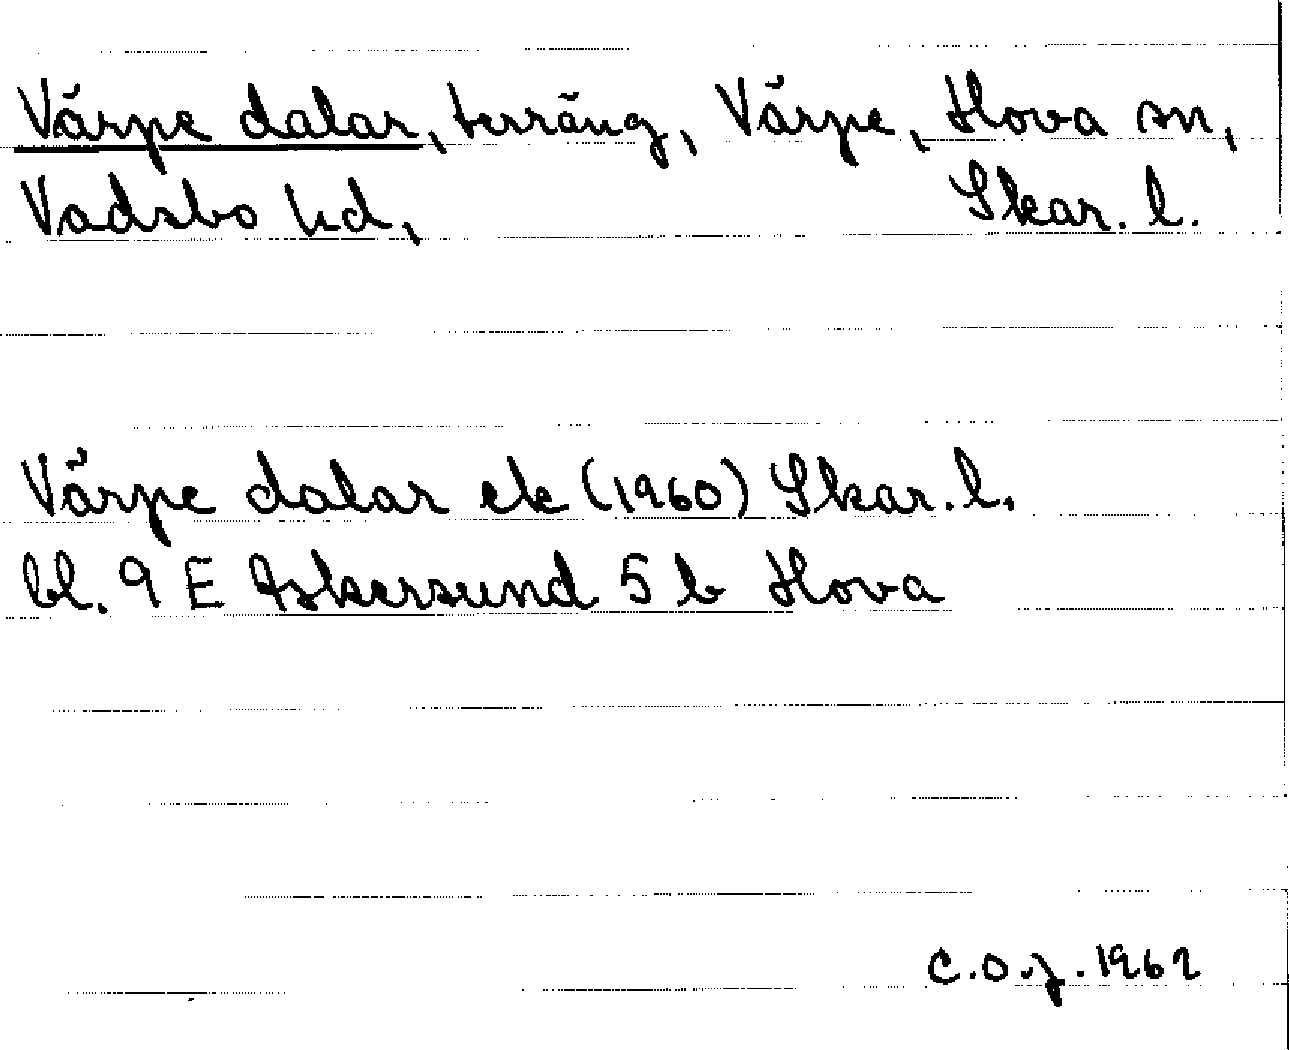 Värpe dalar, terräng, Värpe, Hova sn,
Vadsbo hd, Skar. l.
Värpe dalar ek (1960) Skar. l.
bl. 9 E Askersund 5 b Hova
C.O.J. 1962